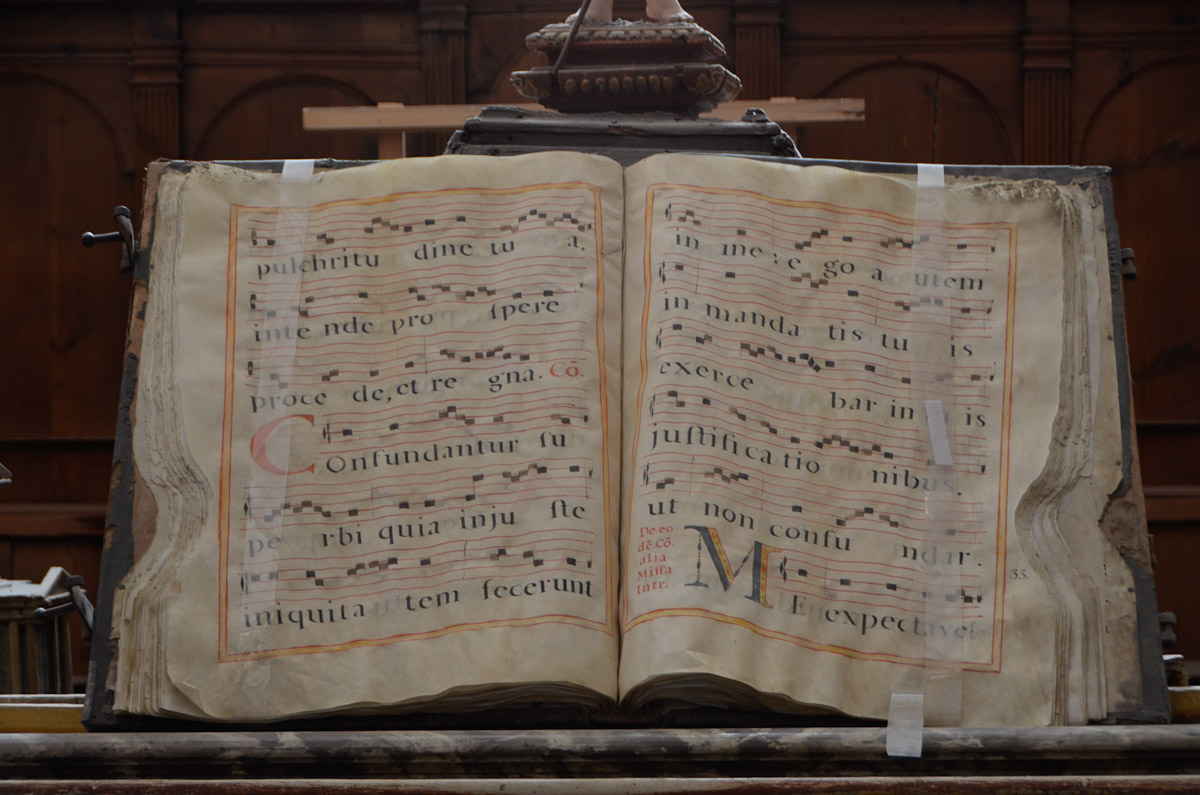 pulchritu dine tu a.
inte nde pro ſpere
proce de, et re gna. Cõ.
COnfundantur ſu
pe rbi quia inju ſte
iniquita tem fecerunt
in me: e go a utem
in manda tis tu is
exerce bar in is
juſtifica tio nibus.
ut non confu ndar.
De eo
dẽ Cõ.
alia
Miſſa
Intr.
ME expectave
33.